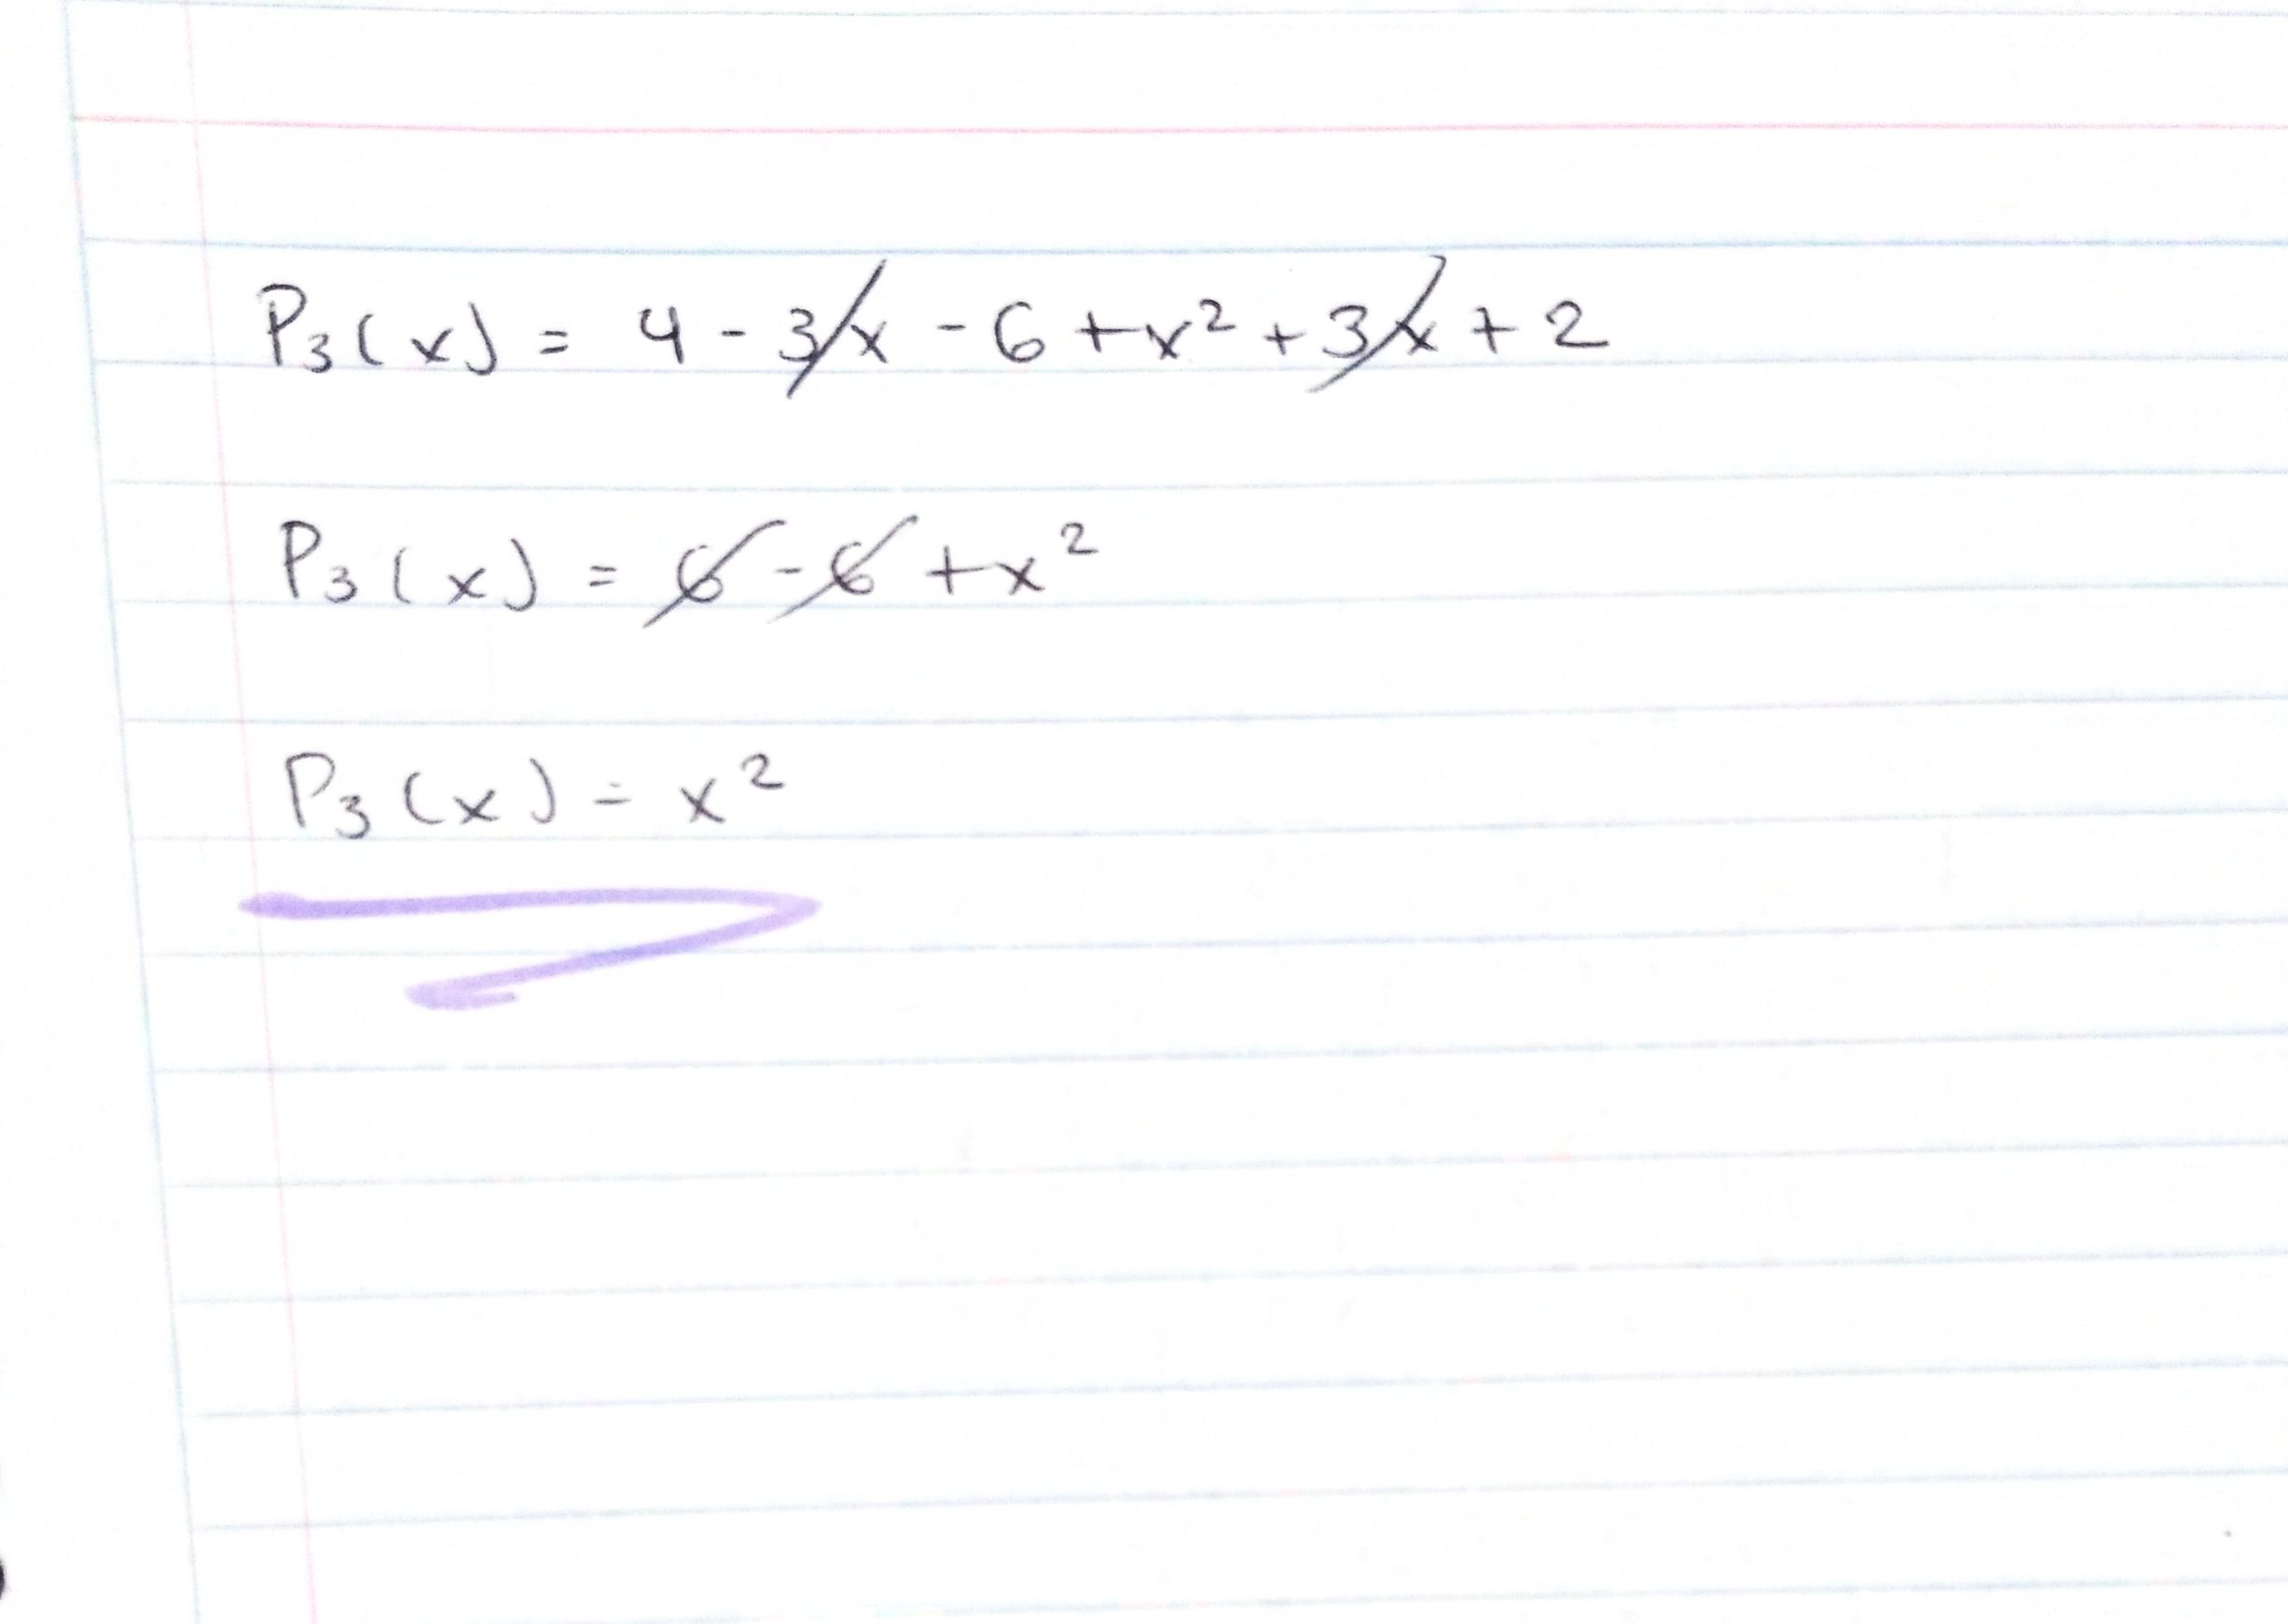 P₃(x) = 4 - 3x - 6 + x² + 3x + 2
P₃(x) = 6 - 6 + x²
P₃(x) = x²